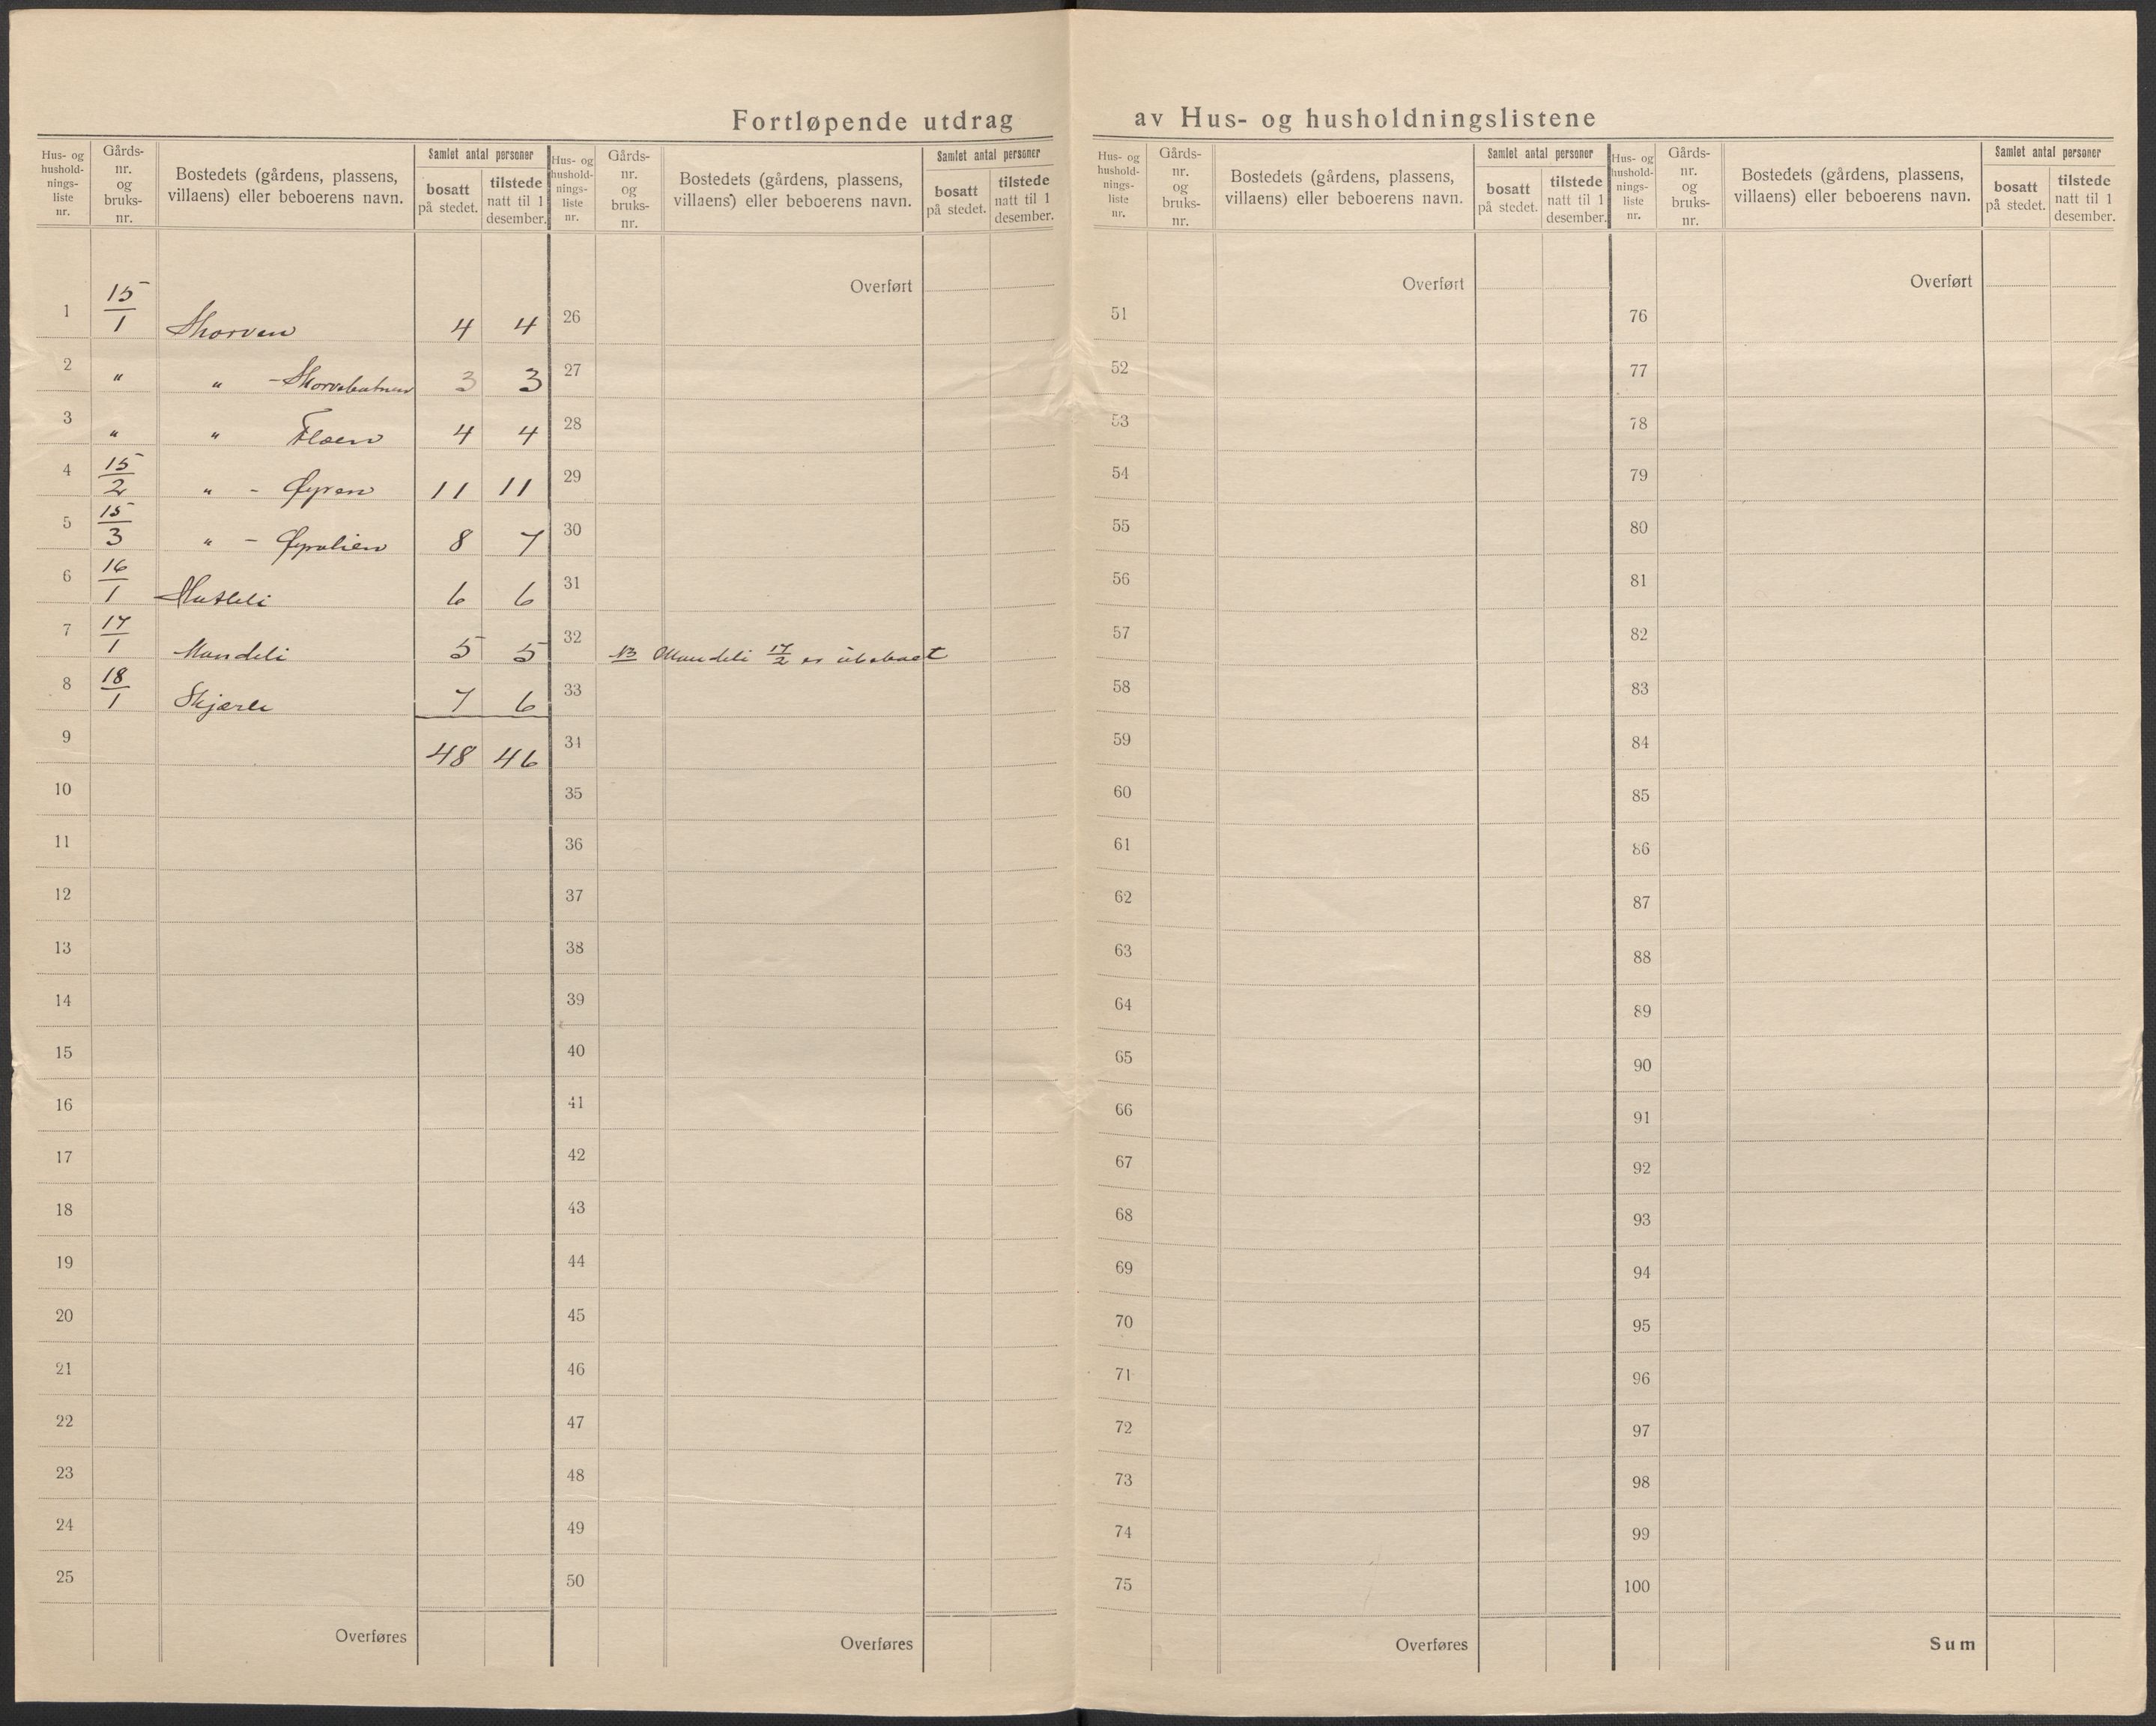 Fortløpende utdrag av Hus- og husholdningslistene
Hus- og hushold- nings- liste nr. | Gårds- nr. og bruks- nr. | Bostedets (gårdens, plassens, villaens) eller beboerens navn. | Samlet antal personer | bosatt på stedet. | tilstede natt til 1 desember.
Hus- og hushold- nings- liste nr. | Gårds- nr. og bruks- nr. | Bostedets (gårdens, plassens, villaens) eller beboerens navn. | Samlet antal personer | bosatt på stedet. | tilstede natt til 1 desember.
Hus- og hushold- nings- liste nr. | Gårds- nr. og bruks- nr. | Bostedets (gårdens, plassens, villaens) eller beboerens navn. | Samlet antal personer | bosatt på stedet. | tilstede natt til 1 desember.
Hus- og hushold- nings- liste nr. | Gårds- nr. og bruks- nr. | Bostedets (gårdens, plassens, villaens) eller beboerens navn. | Samlet antal personer | bosatt på stedet. | tilstede natt til 1 desember.
1 15/1 Skorven 4 4
2 " " - Skorvebotnen 3 3
3 " " Floen 4 4
4 15/2 " - Øyren 11 11
5 15/3 " - Øyralien 8 7
6 16/1 6 6
7 17/1 Mandeli 5 5
8 18/1 Skjærli 7 6
9 48 46
10
11
12
13
14
15
16
17
18
19
20
21
22
23
24
25
Overføres
Overført
26
27
28
29
30
31
32 NB Mandeli 17/2 er ubeboet
33
34
35
36
37
38
39
40
41
42
43
44
45
46
47
48
49
50
Overføres
Overført
51
52
53
54
55
56
57
58
59
60
61
62
63
64
65
66
67
68
69
70
71
72
73
74
75
Overføres
Overført
76
77
78
79
80
81
82
83
84
85
86
87
88
89
90
91
92
93
94
95
96
97
98
99
100
Sum